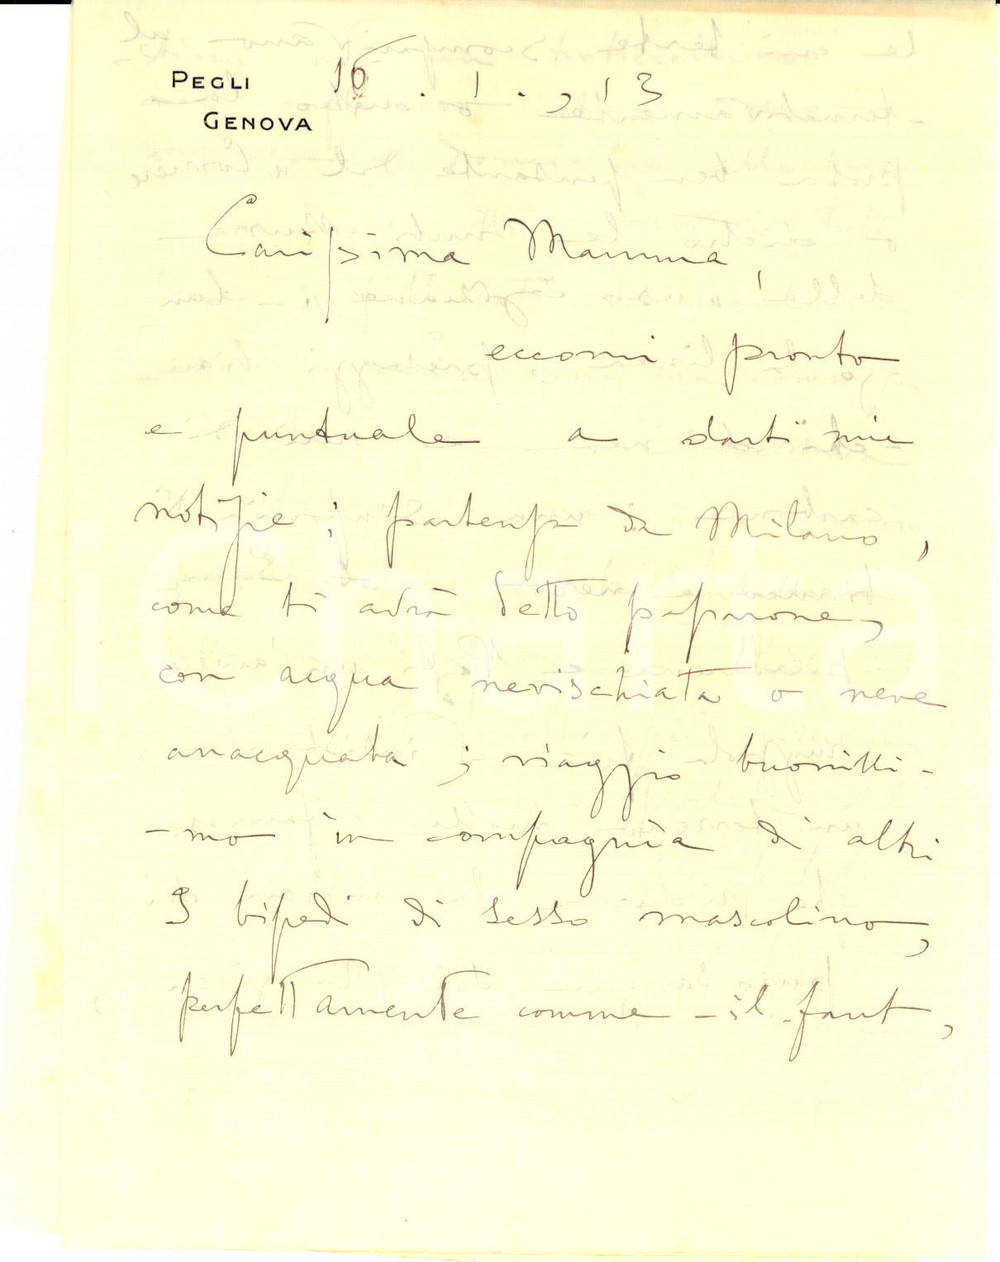 PEGLI
GENOVA
16.1.913
Carissima Mamma,
eccomi pronto
e puntuale a darti mie
notizie; partenza da Milano,
come ti avrà detto paparone,
con acqua nevischiata o neve
annacquata; viaggio buonissi-
-mo in compagnia di altri
3 bipedi di sesso mascolino,
perfettamente comme-il-faut,
iCharta